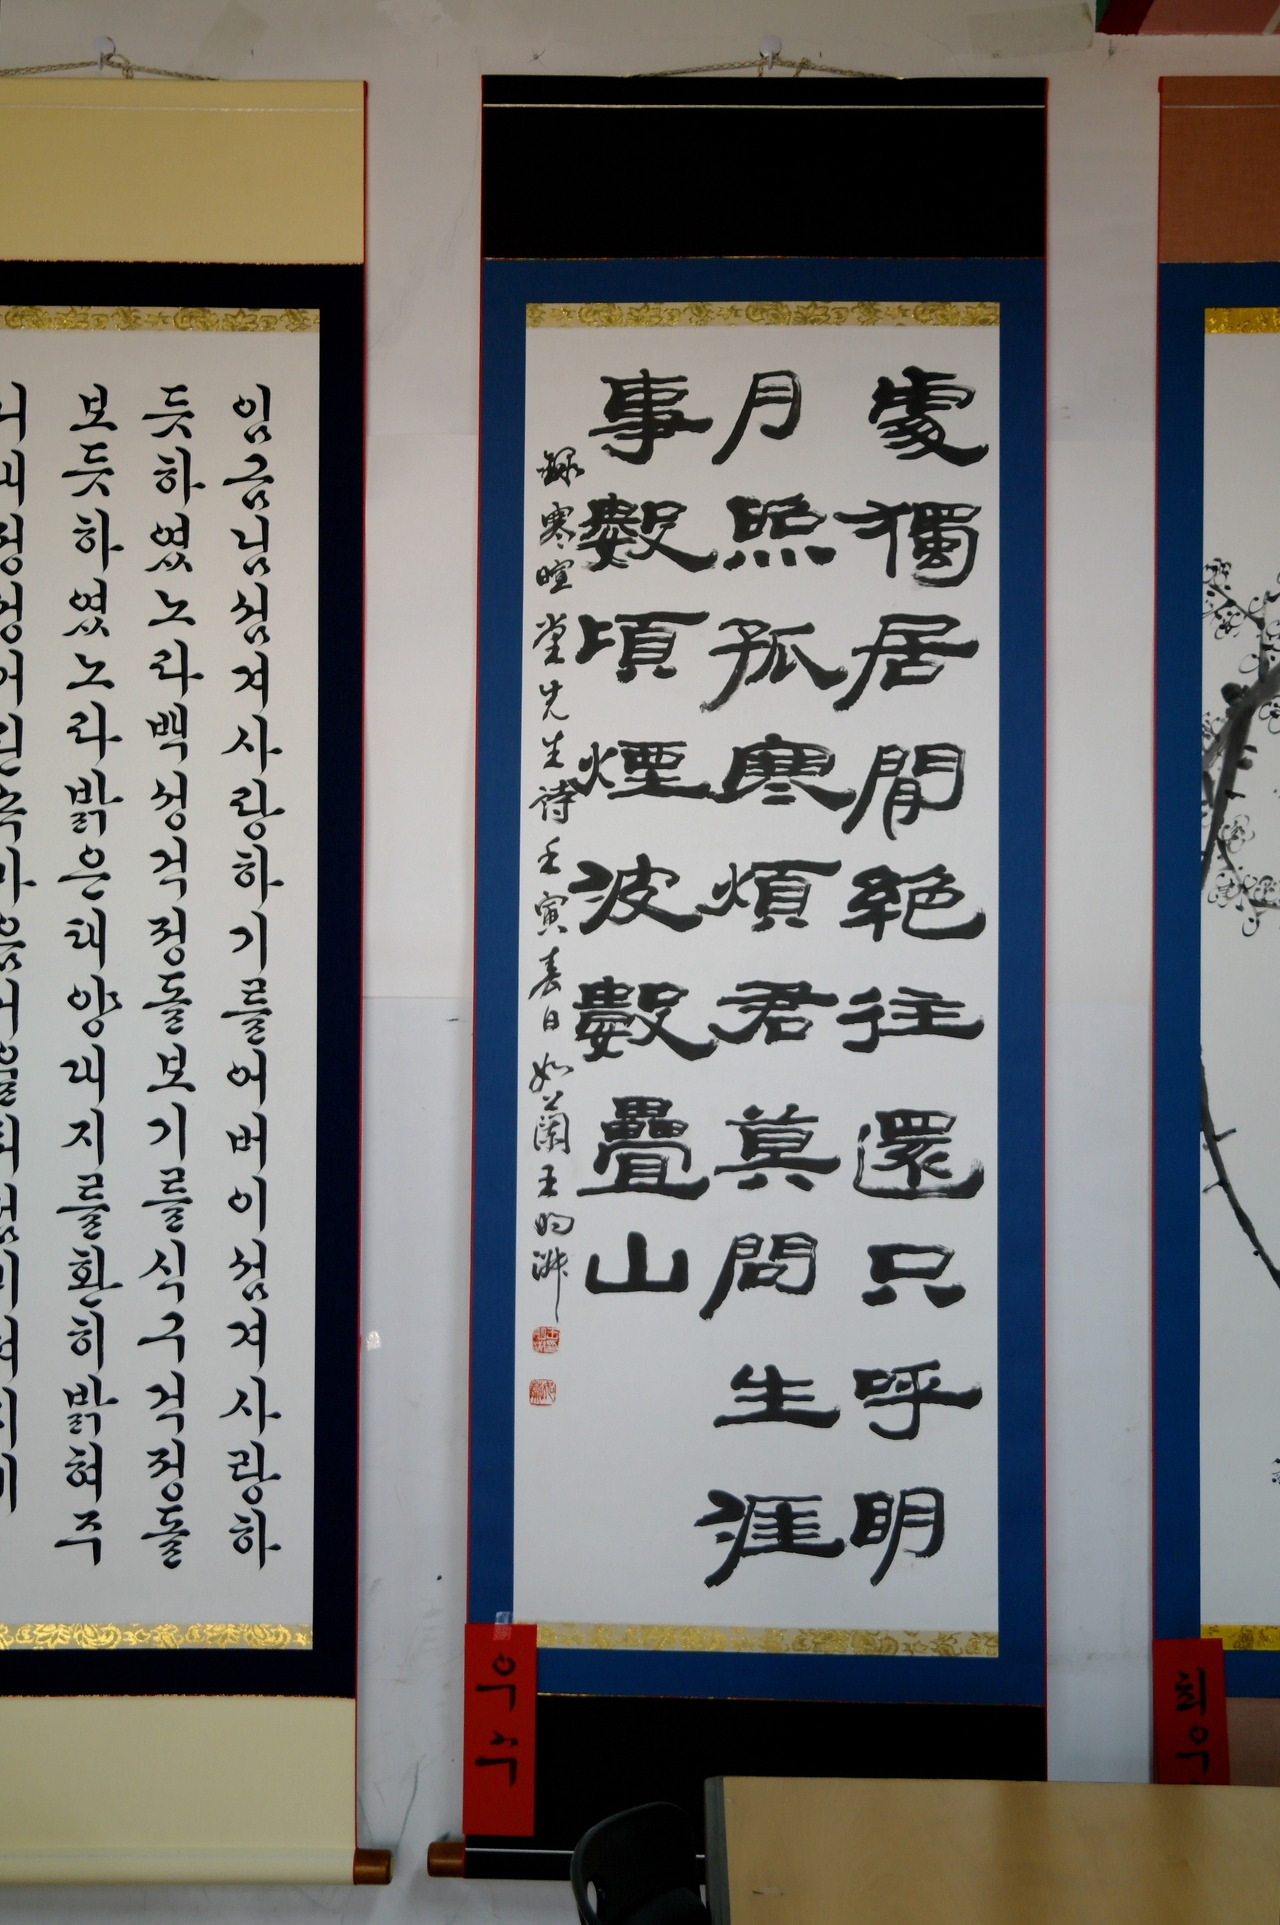 處獨居閒絶往還只呼明
月照孤寒煩君莫問生涯
事數頃煙波數疊山
錄寒暄堂先生詩壬寅春日如蘭王昀
우수
임금님섬겨사랑하기를어버이섬겨사랑하
듯하였노라백성걱정돌보기를식구걱정돌
보듯하였노라밝은태양대지를환히밝혀주
최우